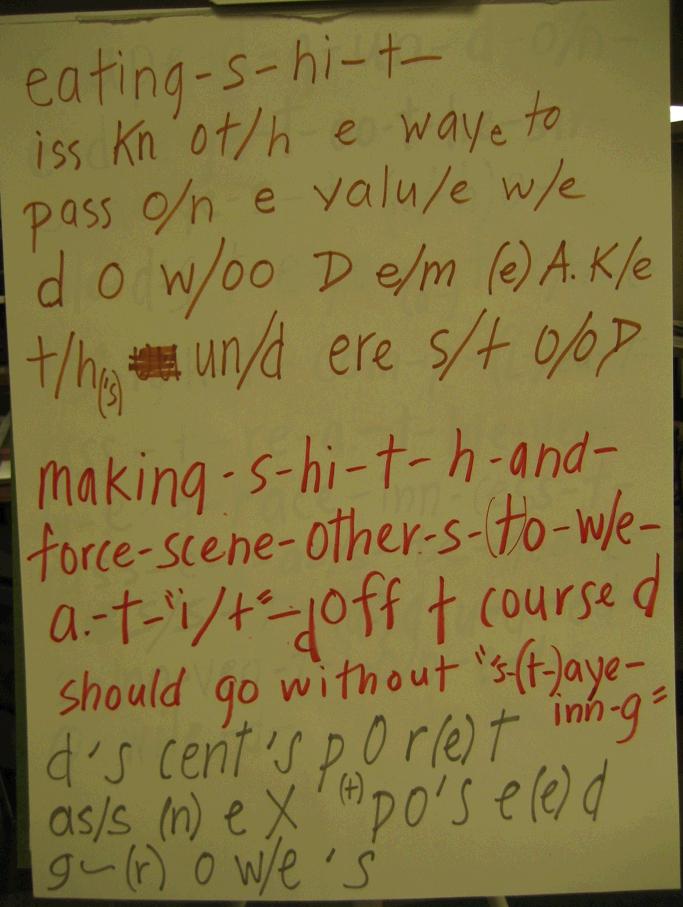 eating-s-hi-t-
iss Kn ot/h e waye to
pass o/n e valu/e w/e
d O w/oo D e/m (e) A. K/e
t/h('s) un/d ere s/t O/o D
making-s-hi-t-h-and-
force-scene-other-s-(t)o-w/e-
a.-t-"i/t"-doff t course d
should go without "s-(t-)aye-
inn-g"
d's cent's p O r(e)t
as/s (n) e X (t) po's e(e) d
g~(r) o w/e 's